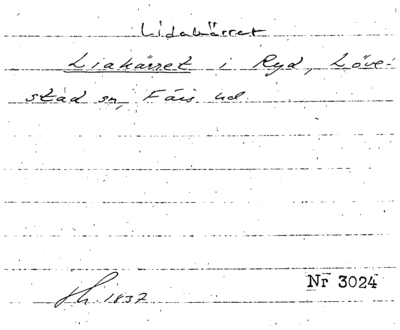 Lidakärret
Liakärret i Ryd, Löve-
stad sn, Färs hd.
Nr 3024
1837